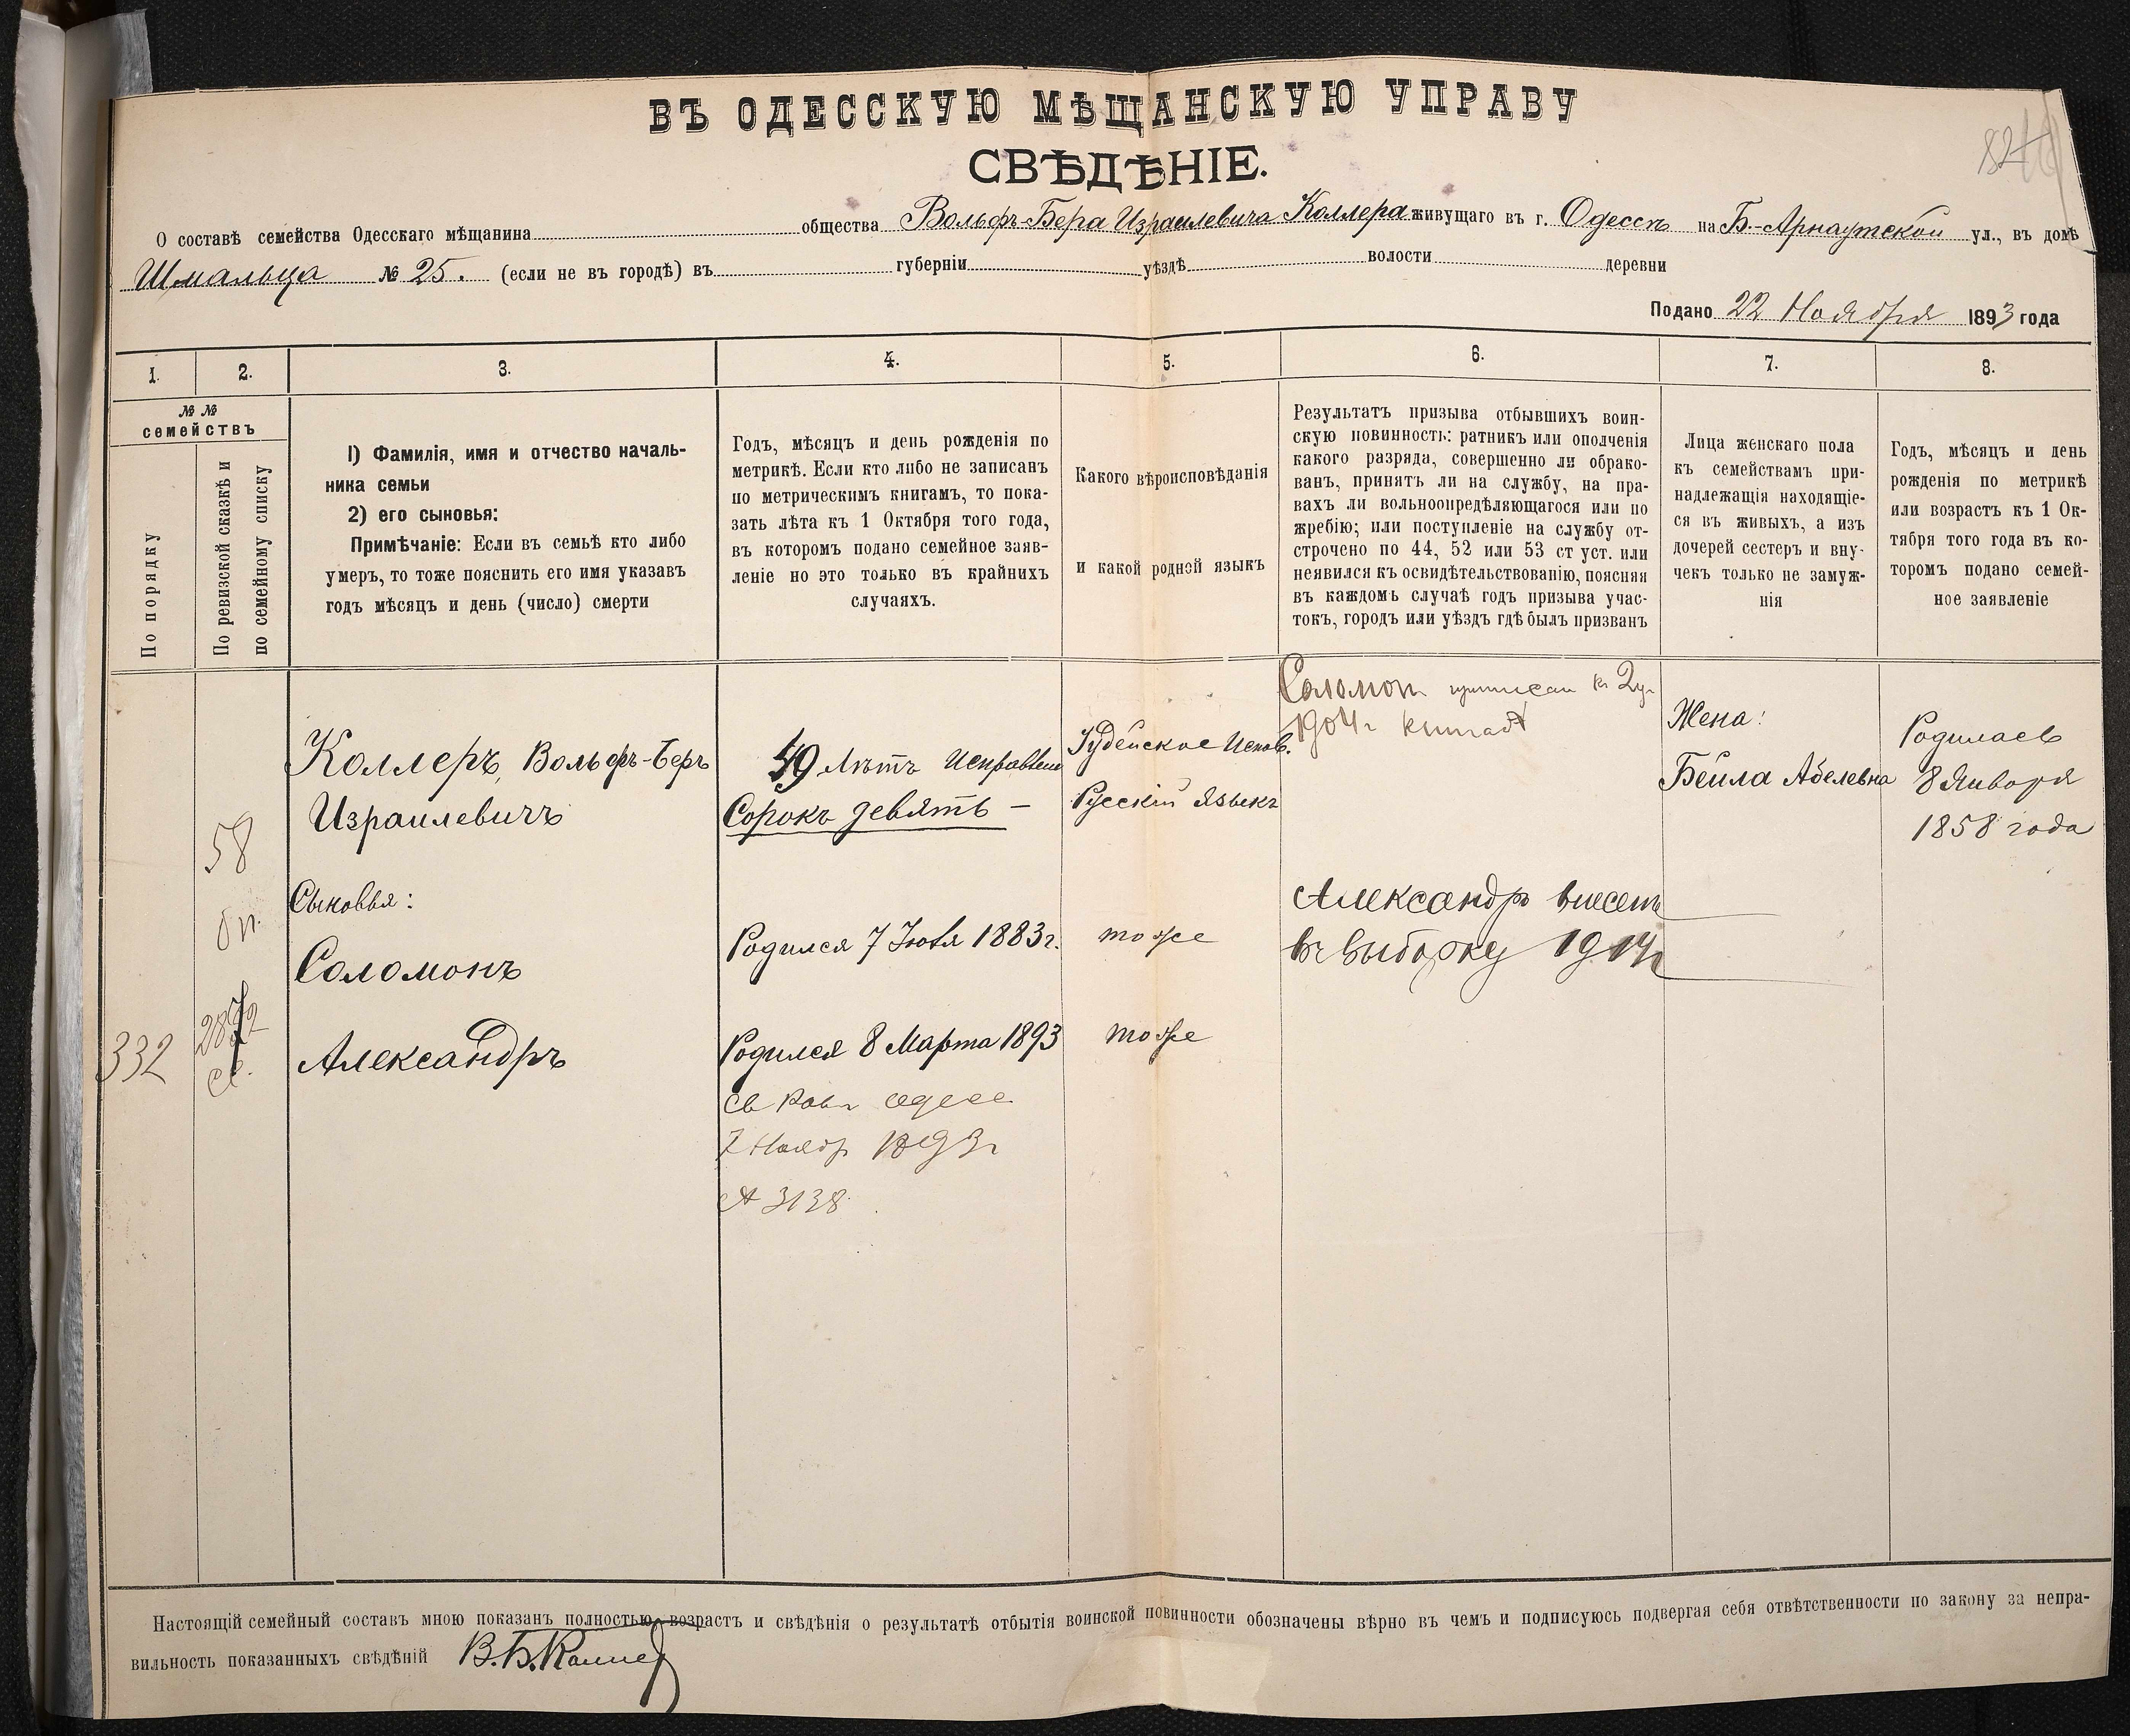 ВЪ ОДЕССКУЮ МѢЩАНСКУЮ УПРАВУ
СВѢДѢНІЕ.
82
О составѣ семейства Одесскаго мѣщанина общества Вольфъ-Бера Израилевича Коллера живущаго въ г. Одессѣ на Б.-Арнаутской ул., въ домѣ
Шмальца № 25. (если не въ городѣ) въ губерніи уѣздѣ волости деревни
Подано 22 Ноября 1893 года
1. 2. 3. 4. 5. 6. 7. 8.
№ №
семействъ
По порядку
По ревизской сказкѣ и
по семейному списку
1) Фамилія, имя и отчество началь-
ника семьи
2) его сыновья:
Примѣчаніе: Если въ семьѣ кто либо
умеръ, то тоже пояснить его имя указавъ
годъ мѣсяцъ и день (число) смерти
Годъ, мѣсяцъ и день рожденія по
метрикѣ. Если кто либо не записанъ
по метрическимъ книгамъ, то пока-
зать лѣта къ 1 Октября того года,
въ которомъ подано семейное заяв-
леніе но это только въ крайнихъ
случаяхъ.
Какого вѣроисповѣданія
и какой родной языкъ
Результатъ призыва отбывшихъ воин-
скую повинность: ратникъ или ополченія
какого разряда, совершенно ли обрако-
ванъ, принятъ ли на службу, на пра-
вахъ ли вольноопредѣляющагося или по
жребію; или поступленіе на службу от-
строчено по 44, 52 или 53 ст уст. или
неявился къ освидѣтельствованію, поясняя
въ каждомъ случаѣ годъ призыва учас-
токъ, городъ или уѣздъ гдѣ былъ призванъ
Лица женскаго пола
къ семействамъ при-
надлежащія находящіе-
ся въ живыхъ, а изъ
дочерей сестеръ и вну-
чекъ только не замуж-
нія
Годъ, мѣсяцъ и день
рожденія по метрикѣ
или возрастъ къ 1 Ок-
тября того года въ ко-
торомъ подано семей-
ное заявленіе
332
58
Коллеръ, Вольфъ-Беръ
Израилевичъ
Сыновья:
Соломонъ
Александръ
49 Лѣтъ
Сорокъ девять —
Родился 7 Іюля 1883 г.
Родился 8 Марта 1893
7 Ноябр 1893 г
3138
Іудейское Испов.
Русскій языкъ
тоже
тоже
Соломон приписан к 2 уч
1904 г
Александръ внесенъ
въ выборку 1914 г
Жена:
Бейла Абелевна
Родилась
8 Января
1858 года
Настоящій семейный составъ мною показанъ полностью, возрастъ и свѣдѣнія о результатѣ отбытія воинской повинности обозначены вѣрно въ чемъ и подписуюсь подвергая себя отвѣтственности по закону за непра-
вильность показанныхъ свѣдѣній В. Б. Коллер